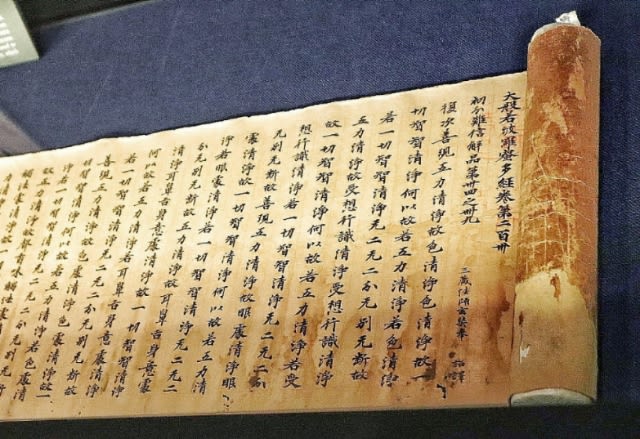 大般若波羅蜜多經卷第二百廿
初分難信解品第卅四之卅九 三藏法師玄奘奉 詔譯
復次善現五力清淨故色清淨色清淨故一
切智智清淨何以故若五力清淨若色清淨
若一切智智清淨无二无二分无別无斷故
五力清淨故受想行識清淨受想行識清淨
故一切智智清淨何以故若五力清淨若受
想行識清淨若一切智智清淨无二无二分
无別无斷故善現五力清淨故眼處清淨眼
處清淨故一切智智清淨何以故若五力清
淨若眼處清淨若一切智智清淨无二无二
分无別无斷故五力清淨故耳鼻舌身意處
清淨耳鼻舌身意處清淨故一切智智清淨
何以故若五力清淨若耳鼻舌身意處清淨
若一切智智清淨无二无二分无別无斷故
善現五力清淨故色處清淨色處清淨故一
切智智清淨何以故若五力清淨若色處清
淨若一切智智清淨无二无二分无別无斷
故五力清淨故聲香味